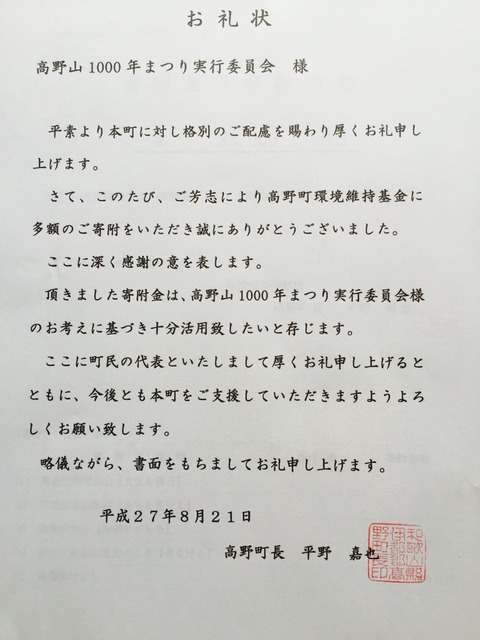 お礼状
高野山1000年まつり実行委員会　様
平素より本町に対し格別のご配慮を賜わり厚くお礼申し
上げます。
さて、このたび、ご芳志により高野町環境維持基金に
多額のご寄附をいただき誠にありがとうございました。
ここに深く感謝の意を表します。
頂きました寄附金は、高野山1000年まつり実行委員会様
のお考えに基づき十分活用致したいと存じます。
ここに町民の代表といたしまして厚くお礼申し上げると
ともに、今後とも本町をご支援していただきますようよろ
しくお願い致します。
略儀ながら、書面をもちましてお礼申し上げます。
平成27年8月21日
高野町長　平野　嘉也
和歌山縣
伊都郡高
野町長印